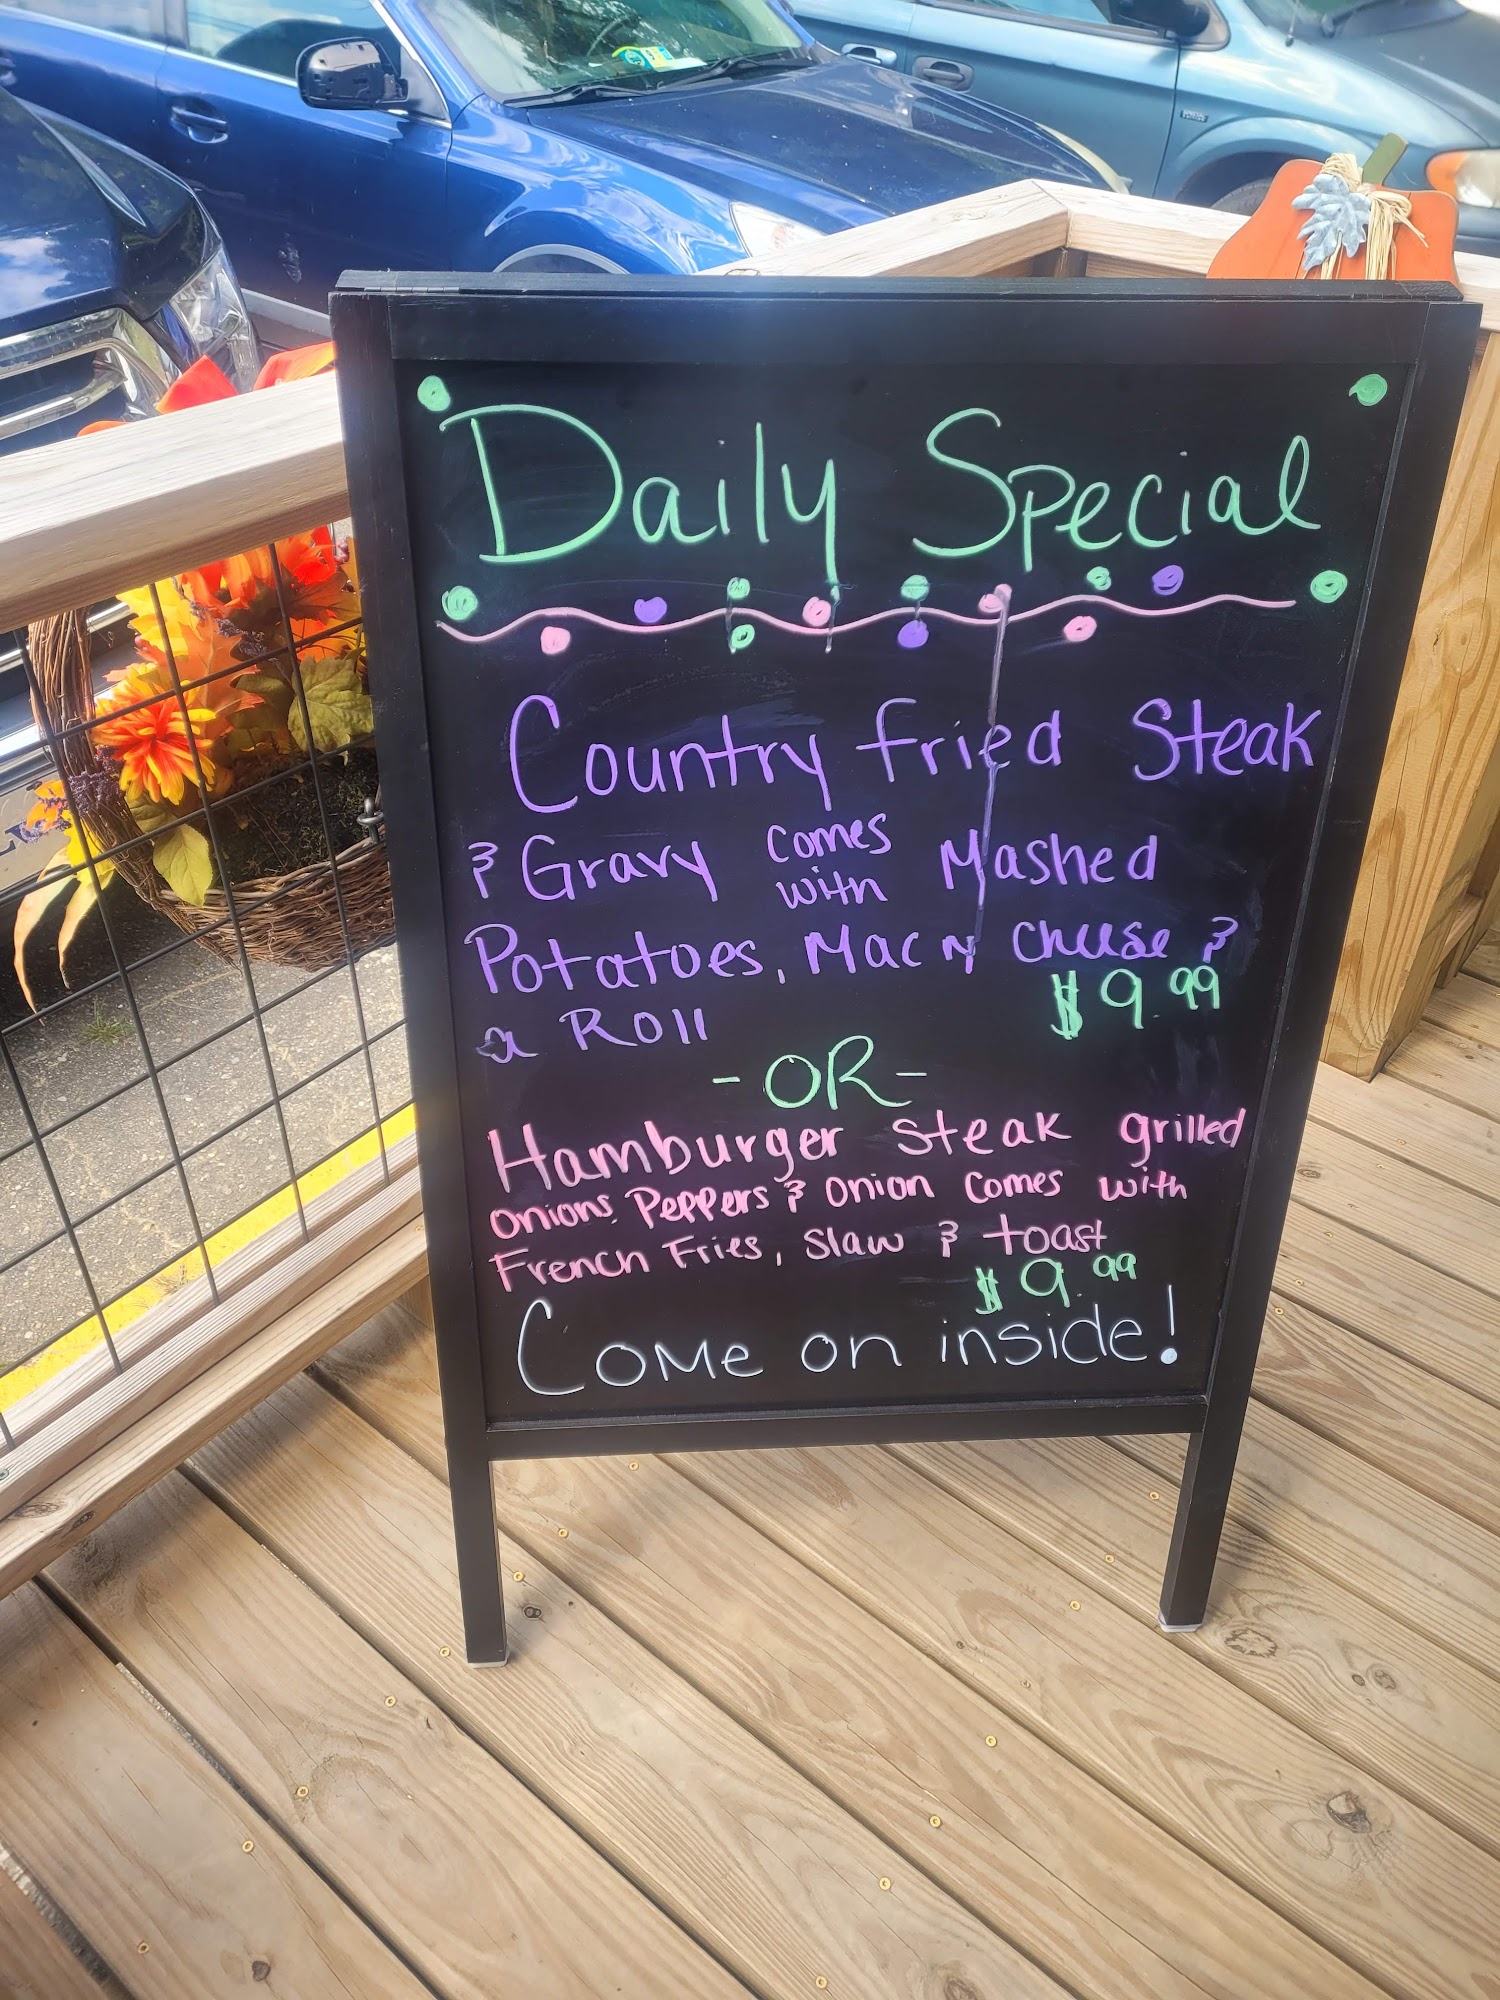 Daily Special
Country fried Steak
& Gravy comes with Mashed
Potatoes, Mac N Cheese &
a Roll $9.99
-OR-
Hamburger Steak grilled
onions, Peppers & onion comes with
French Fries, slaw & toast
$9.99
Come on inside!